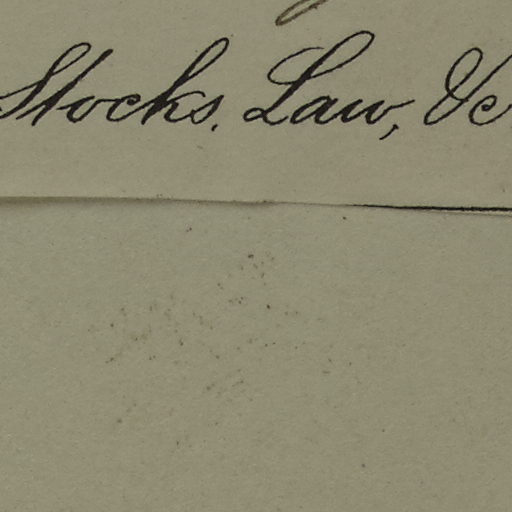 Stocks. Law, &c